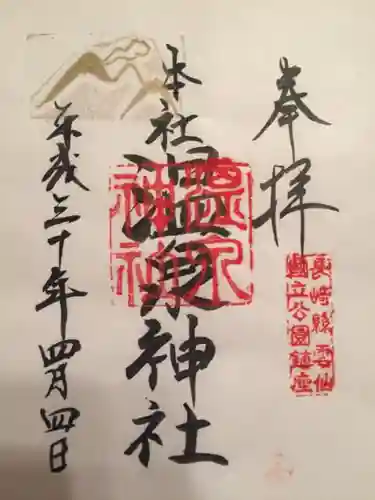 奉拝
長崎縣雲仙
國立公園鎮座
本社
温泉神社
温泉神社
平成三十年四月四日